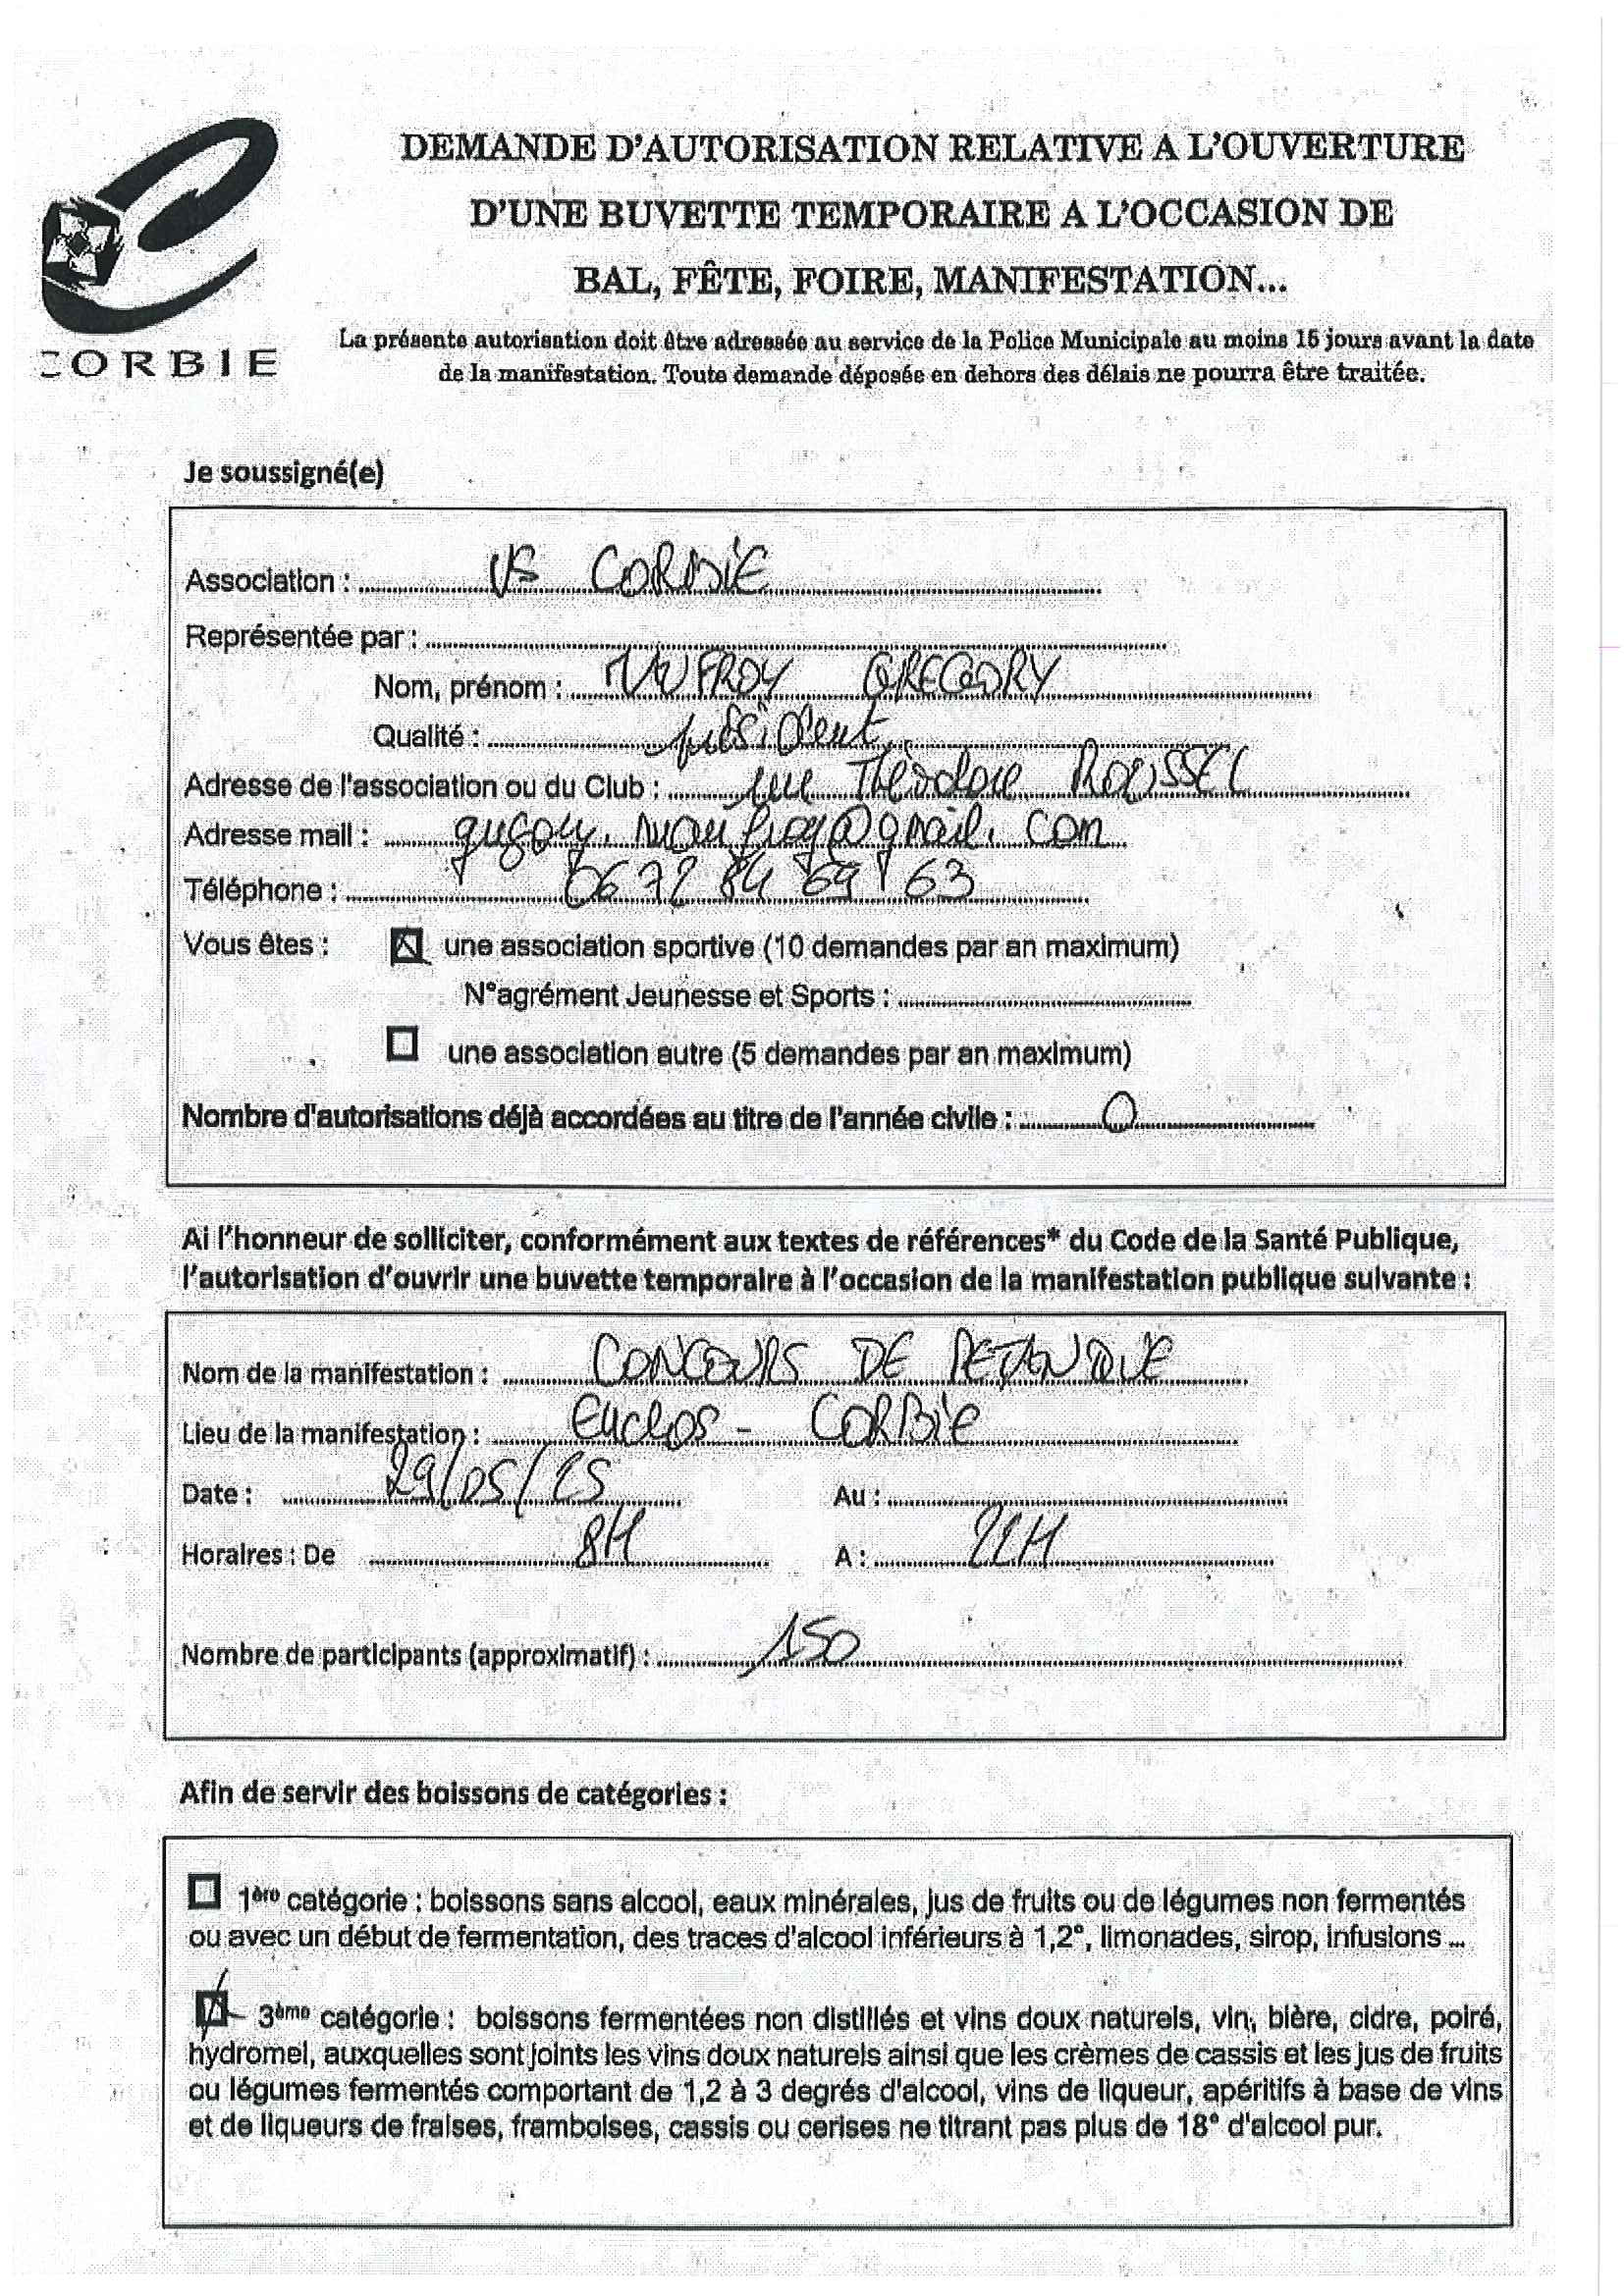 DEMANDE D'AUTORISATION RELATIVE A L'OUVERTURE
D'UNE BUVETTE TEMPORAIRE A L'OCCASION DE
BAL, FÊTE, FOIRE, MANIFESTATION...
CORBIE
La présente autorisation doit être adressée au service de la Police Municipale au moins 15 jours avant la date
de la manifestation. Toute demande déposée en dehors des délais ne pourra être traitée.
Je soussigné(e)
Association : US CORBIE
Représentée par :
Nom, prénom : GREGORY
Qualité : président
Adresse de l'association ou du Club : rue Théodore ROUSSEL
Adresse mail :
Téléphone : 06 72 84 69 63
Vous êtes : une association sportive (10 demandes par an maximum)
N°agrément Jeunesse et Sports :
une association autre (5 demandes par an maximum)
Nombre d'autorisations déjà accordées au titre de l'année civile : 0
Ai l'honneur de solliciter, conformément aux textes de références* du Code de la Santé Publique,
l'autorisation d'ouvrir une buvette temporaire à l'occasion de la manifestation publique suivante :
Nom de la manifestation : CONCOURS DE PETANQUE
Lieu de la manifestation : Enclos - CORBIE
Date : 29/05/25 Au :
Horaires : De 8H A : 22H
Nombre de participants (approximatif) : 150
Afin de servir des boissons de catégories :
1ère catégorie : boissons sans alcool, eaux minérales, jus de fruits ou de légumes non fermentés
ou avec un début de fermentation, des traces d'alcool inférieurs à 1,2°, limonades, sirop, infusions ...
3ème catégorie : boissons fermentées non distillés et vins doux naturels, vin, bière, cidre, poiré,
hydromel, auxquelles sont joints les vins doux naturels ainsi que les crèmes de cassis et les jus de fruits
ou légumes fermentés comportant de 1,2 à 3 degrés d'alcool, vins de liqueur, apéritifs à base de vins
et de liqueurs de fraises, framboises, cassis ou cerises ne titrant pas plus de 18° d'alcool pur.